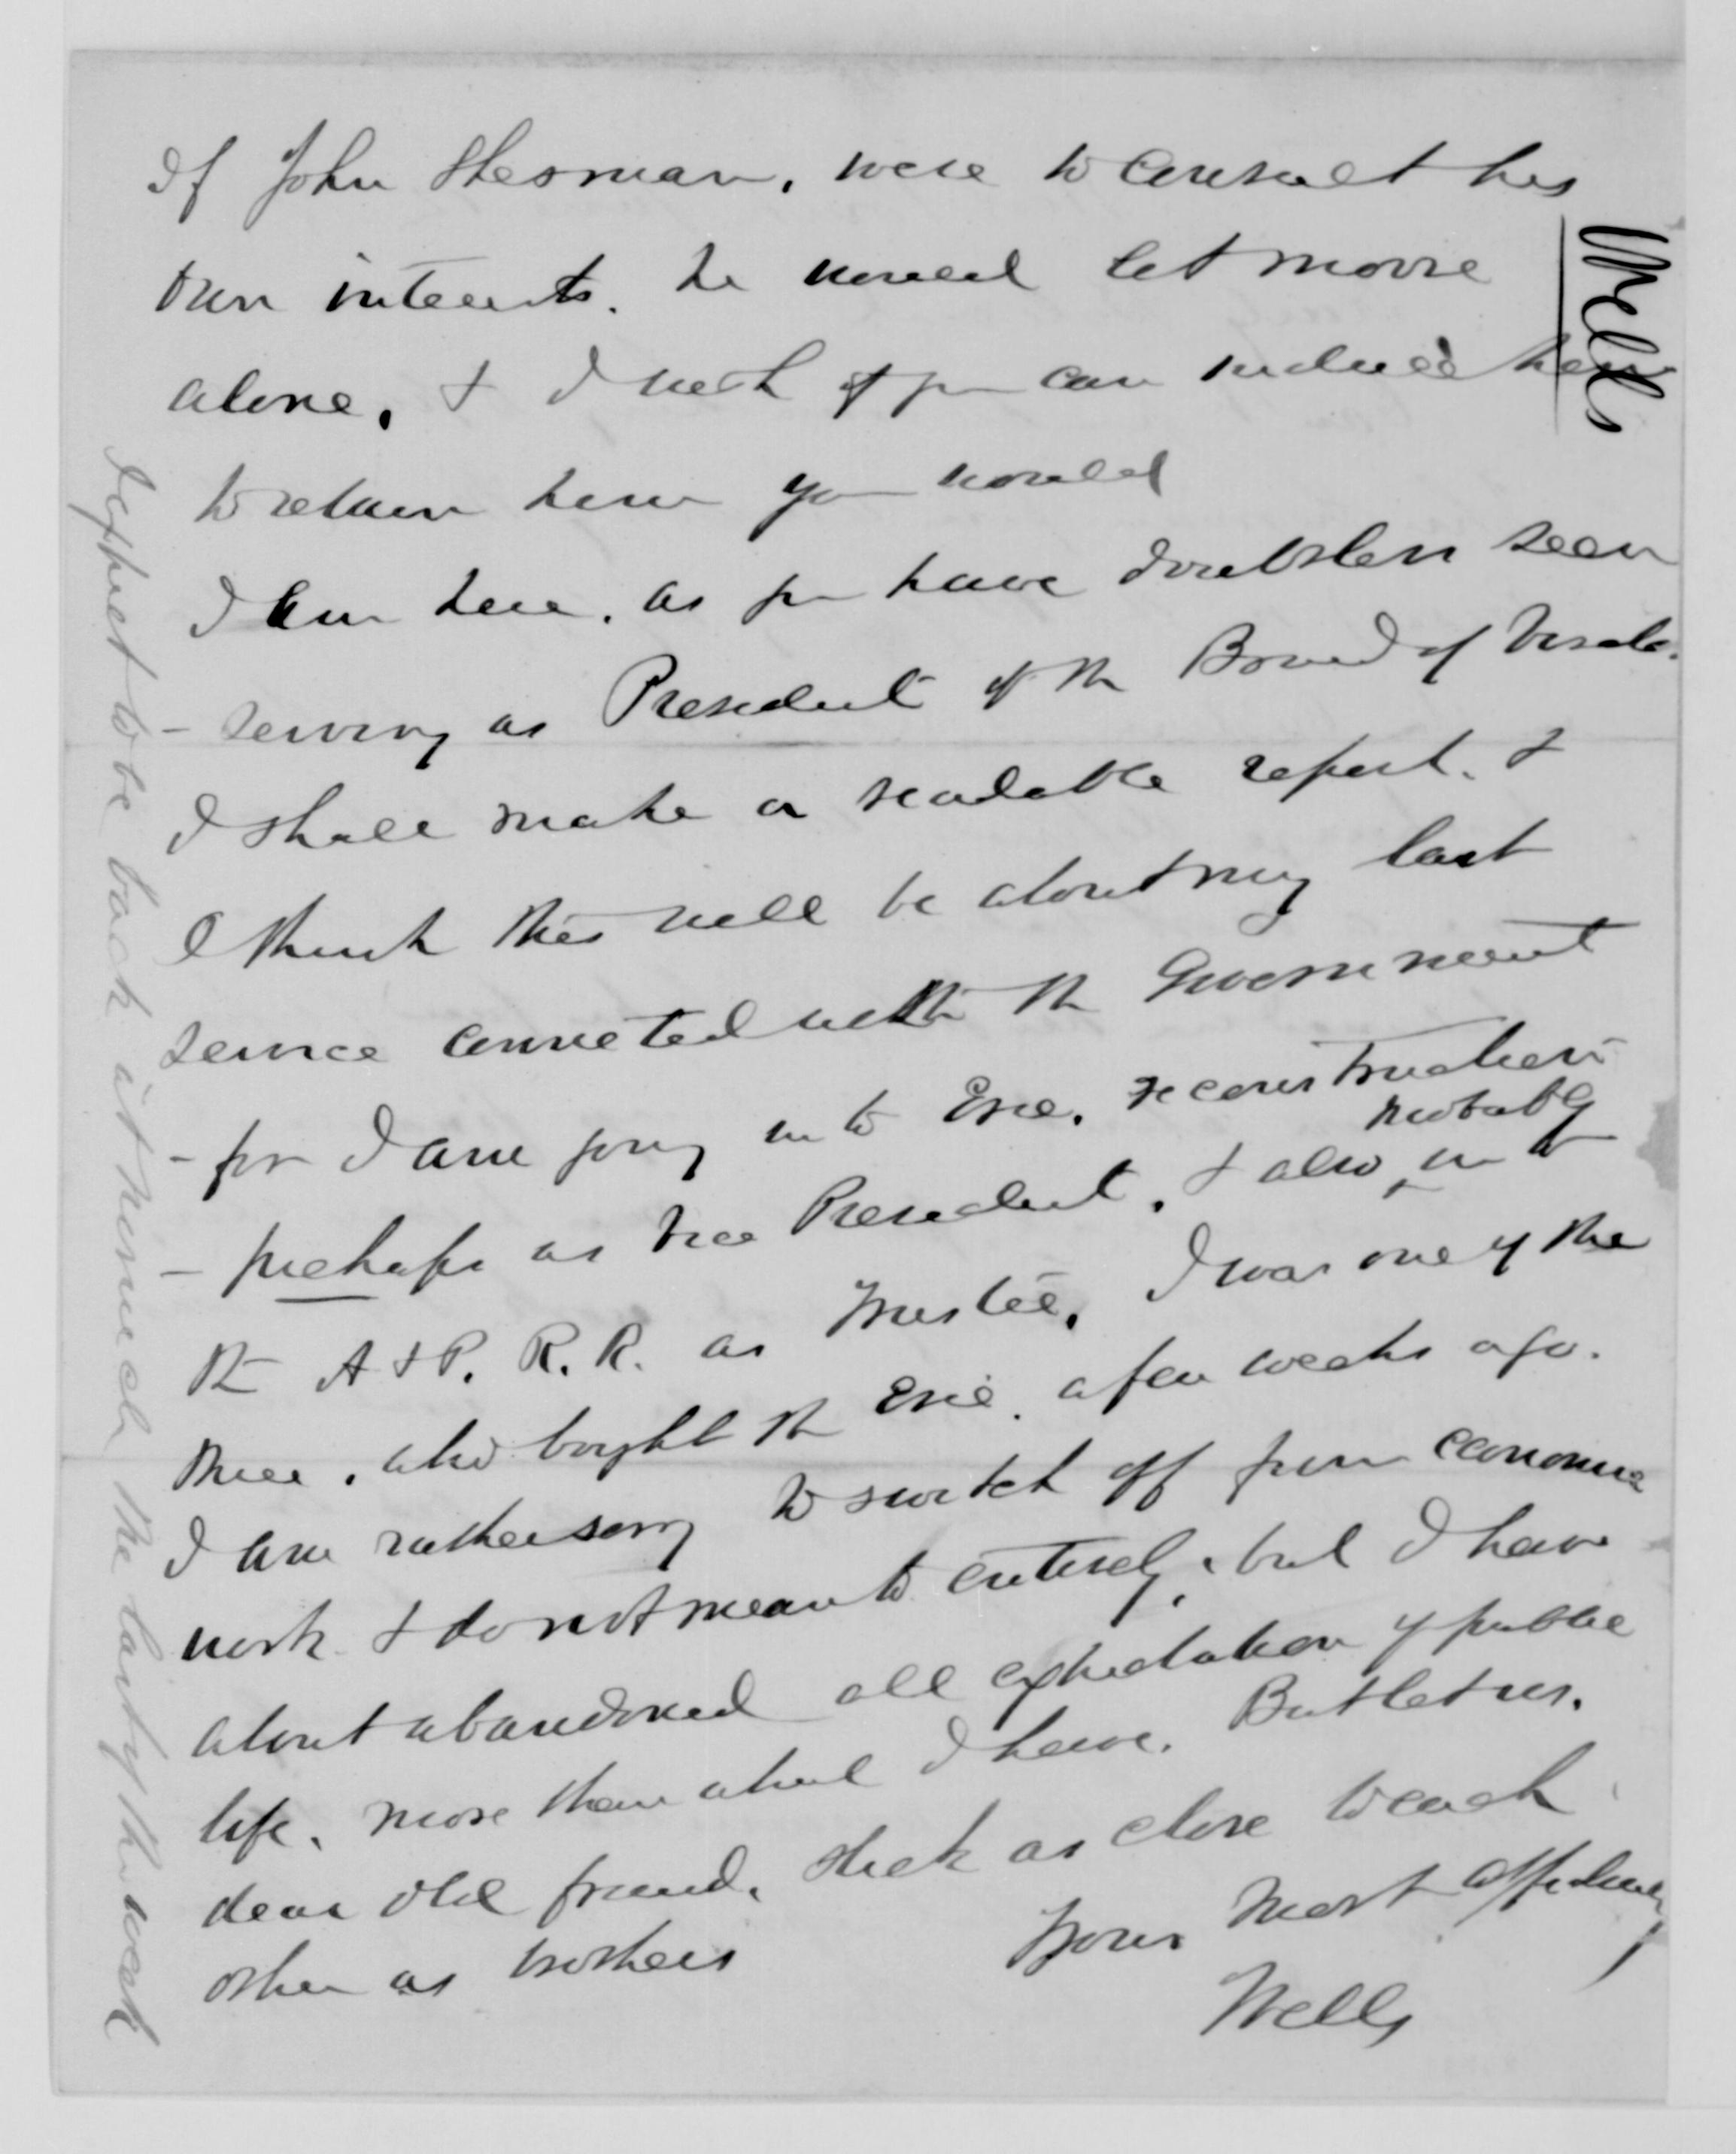 If John Sherman, were to consult his
own interests. he would let Morse
alone. & I wish if you can induce him
to retain him you would
I am here. as you have doubtless seen
- serving as President of the Board of Visitors.
I shall make a readable report. &
I think this will be about my last
service connected with the Government
- for I am going into Erie. reconstruction
probably
- perhaps as Vice President. & also ‸ into
the A & P. R. R. as Trustee. I was one of the
three. who bought the Erie. a few weeks ago.
I am rather sorry to switch off from economic
work & do not mean to entirely, but I have
about abandoned all expectation of public
life. more than what I have. But let us.
dear old friend. stick as close to each
other as brothers
Yours most affectionately
Wells
Wells
I expect to be back at Norwich the last of the week